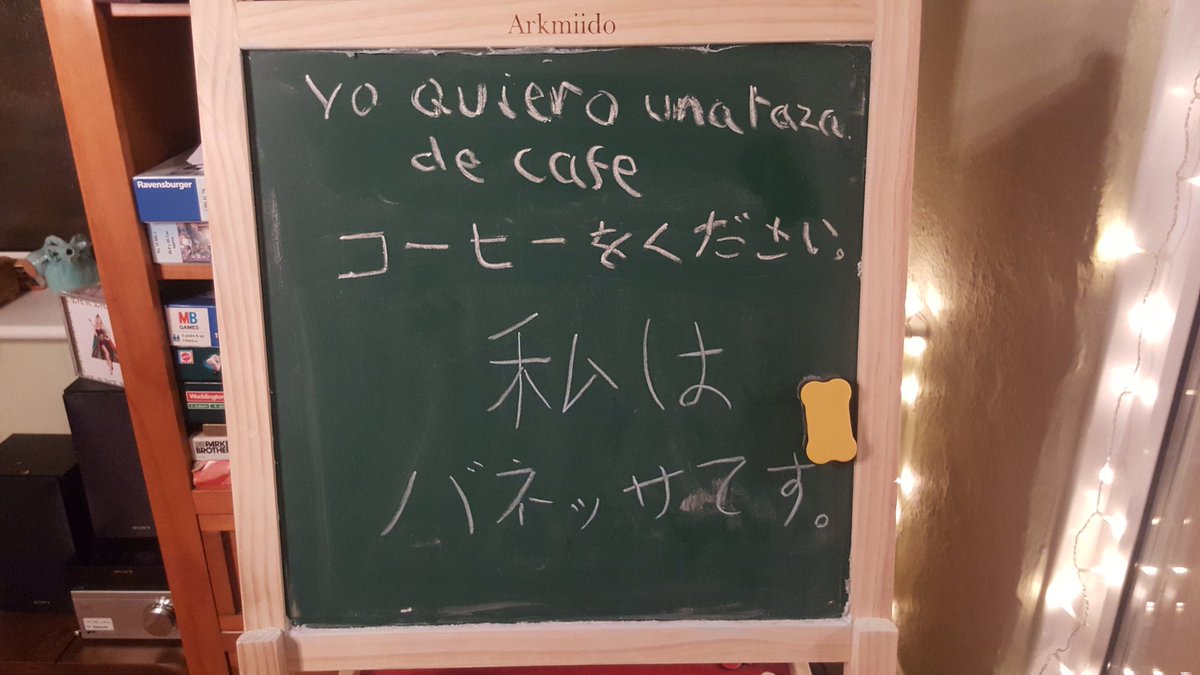 Arkmiido
Yo quiero una taza
de cafe
コーヒーをください。
私は
バネッサてす。
Ravensburger
MB
GAMES
PARK
BROTHE
SONY
SONY